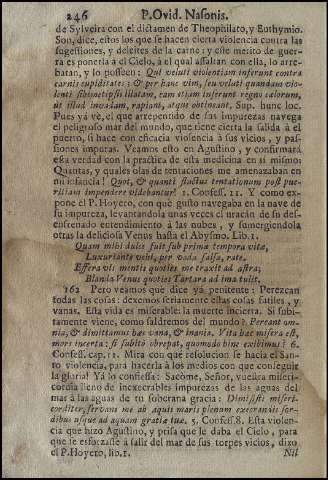 246 P. Ovid. Nasonis.
de Sylveira con el dictamen de Theophilato, y Euthymio.
Son, dice, estos los que se hacen cierta violencia contra las
sugestiones, y deleites de la carne: y este merito de guerra
es ponerla à el Cielo, à el qual assaltan con ella, lo arre-
batan, y lo posseen: Qui veluti violentiam inferunt contra
carnis cupiditates: & per hanc vim, seu veluti quandam vio-
lenti sibimetipsis illatam, eam etiam inferunt regno cælorum,
ut illud invadam, rapiant, atque obtineant. Sup. hunc loc.
Pues yá vè, el que arrepentido de sus impurezas navega
el peligroso mar del mundo, que tiene cierta la salida à el
puerto, si hace con eficacia violencia à sus vicios, y pas-
siones impuras. Veamos esto en Agustino, y confirmarà
esta verdad con la practica de esta medicina en si mismo
Quantas, y quales olas de tentaciones me amenazaban en
mi infancia! Quot, & quanti fluctus tentationum post pue-
ritiam impendere videbantur! 1. Confess. 11. Y como expo-
ne el P. Hoyero, con què gusto navegaba en la nave de
su impureza, levantandola unas veces el uracàn de su des-
enfrenado entendimiento à las nubes, y sumergiendola
otras la deliciosa Venus hasta el Abysmo. Lib. 1.
Quam mihi dulce fuit sub primæ tempora vitæ,
Luxuriante vehi, per vada salsa, rate.
Effera vis mentis quoties me traxit ad astra;
Blanda Venus quoties Tartara ad ima tulit.
162 Pero veamos que dice yà penitente: Perezcan
todas las cosas: dexemos seriamente estas cosas futiles, y
vanas. Esta vida es miserable: la muerte incierta. Si subi-
tamente viene, como saldremos del mundo? Pereant om-
nia, & dimittamus hæc vana, & inania. Vita hæc misera est,
mors incerta: si subito obrepat, quomodo hinc exibimus? 6.
Confess. cap. 11. Mira con què resolucion se hacia el San-
to violencia, para hacerla à los medios con que conseguir
la gloria! Yà lo confiessa: Sacòme, Señor, vuestra miseri-
cordia lleno de inexecrables impurezas de las aguas del
mar à las aguas de tu soberana gracia: Dimisisti miseri-
corditer, servans me ab aquis maris plenum execrandis sor-
dibus usque ad aquam gratiæ tuæ. 5. Confess. 8. Esta violen-
cia que hizo Agustino, y prisa que le daba el Cielo, para
que se esforzasse à salir del mar de sus torpes vicios, dixo
el P. Hoyero, lib. 1.
Nil